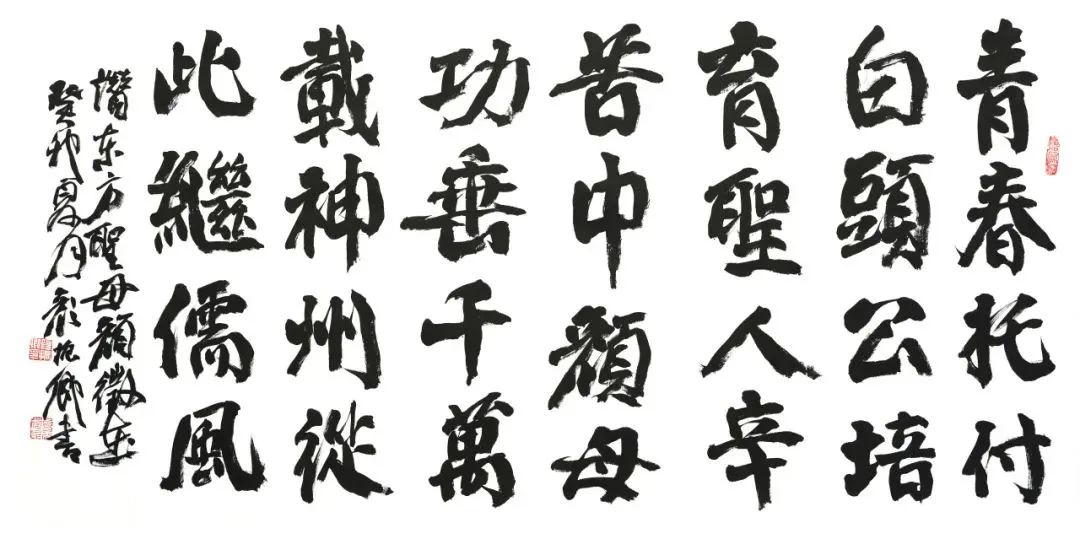 青春托付
白頭公培
育聖人辛
苦中顏母
功垂千萬
載神州從
此繼儒風
讚东方聖母顏徵在
癸卯夏月顏振卿書